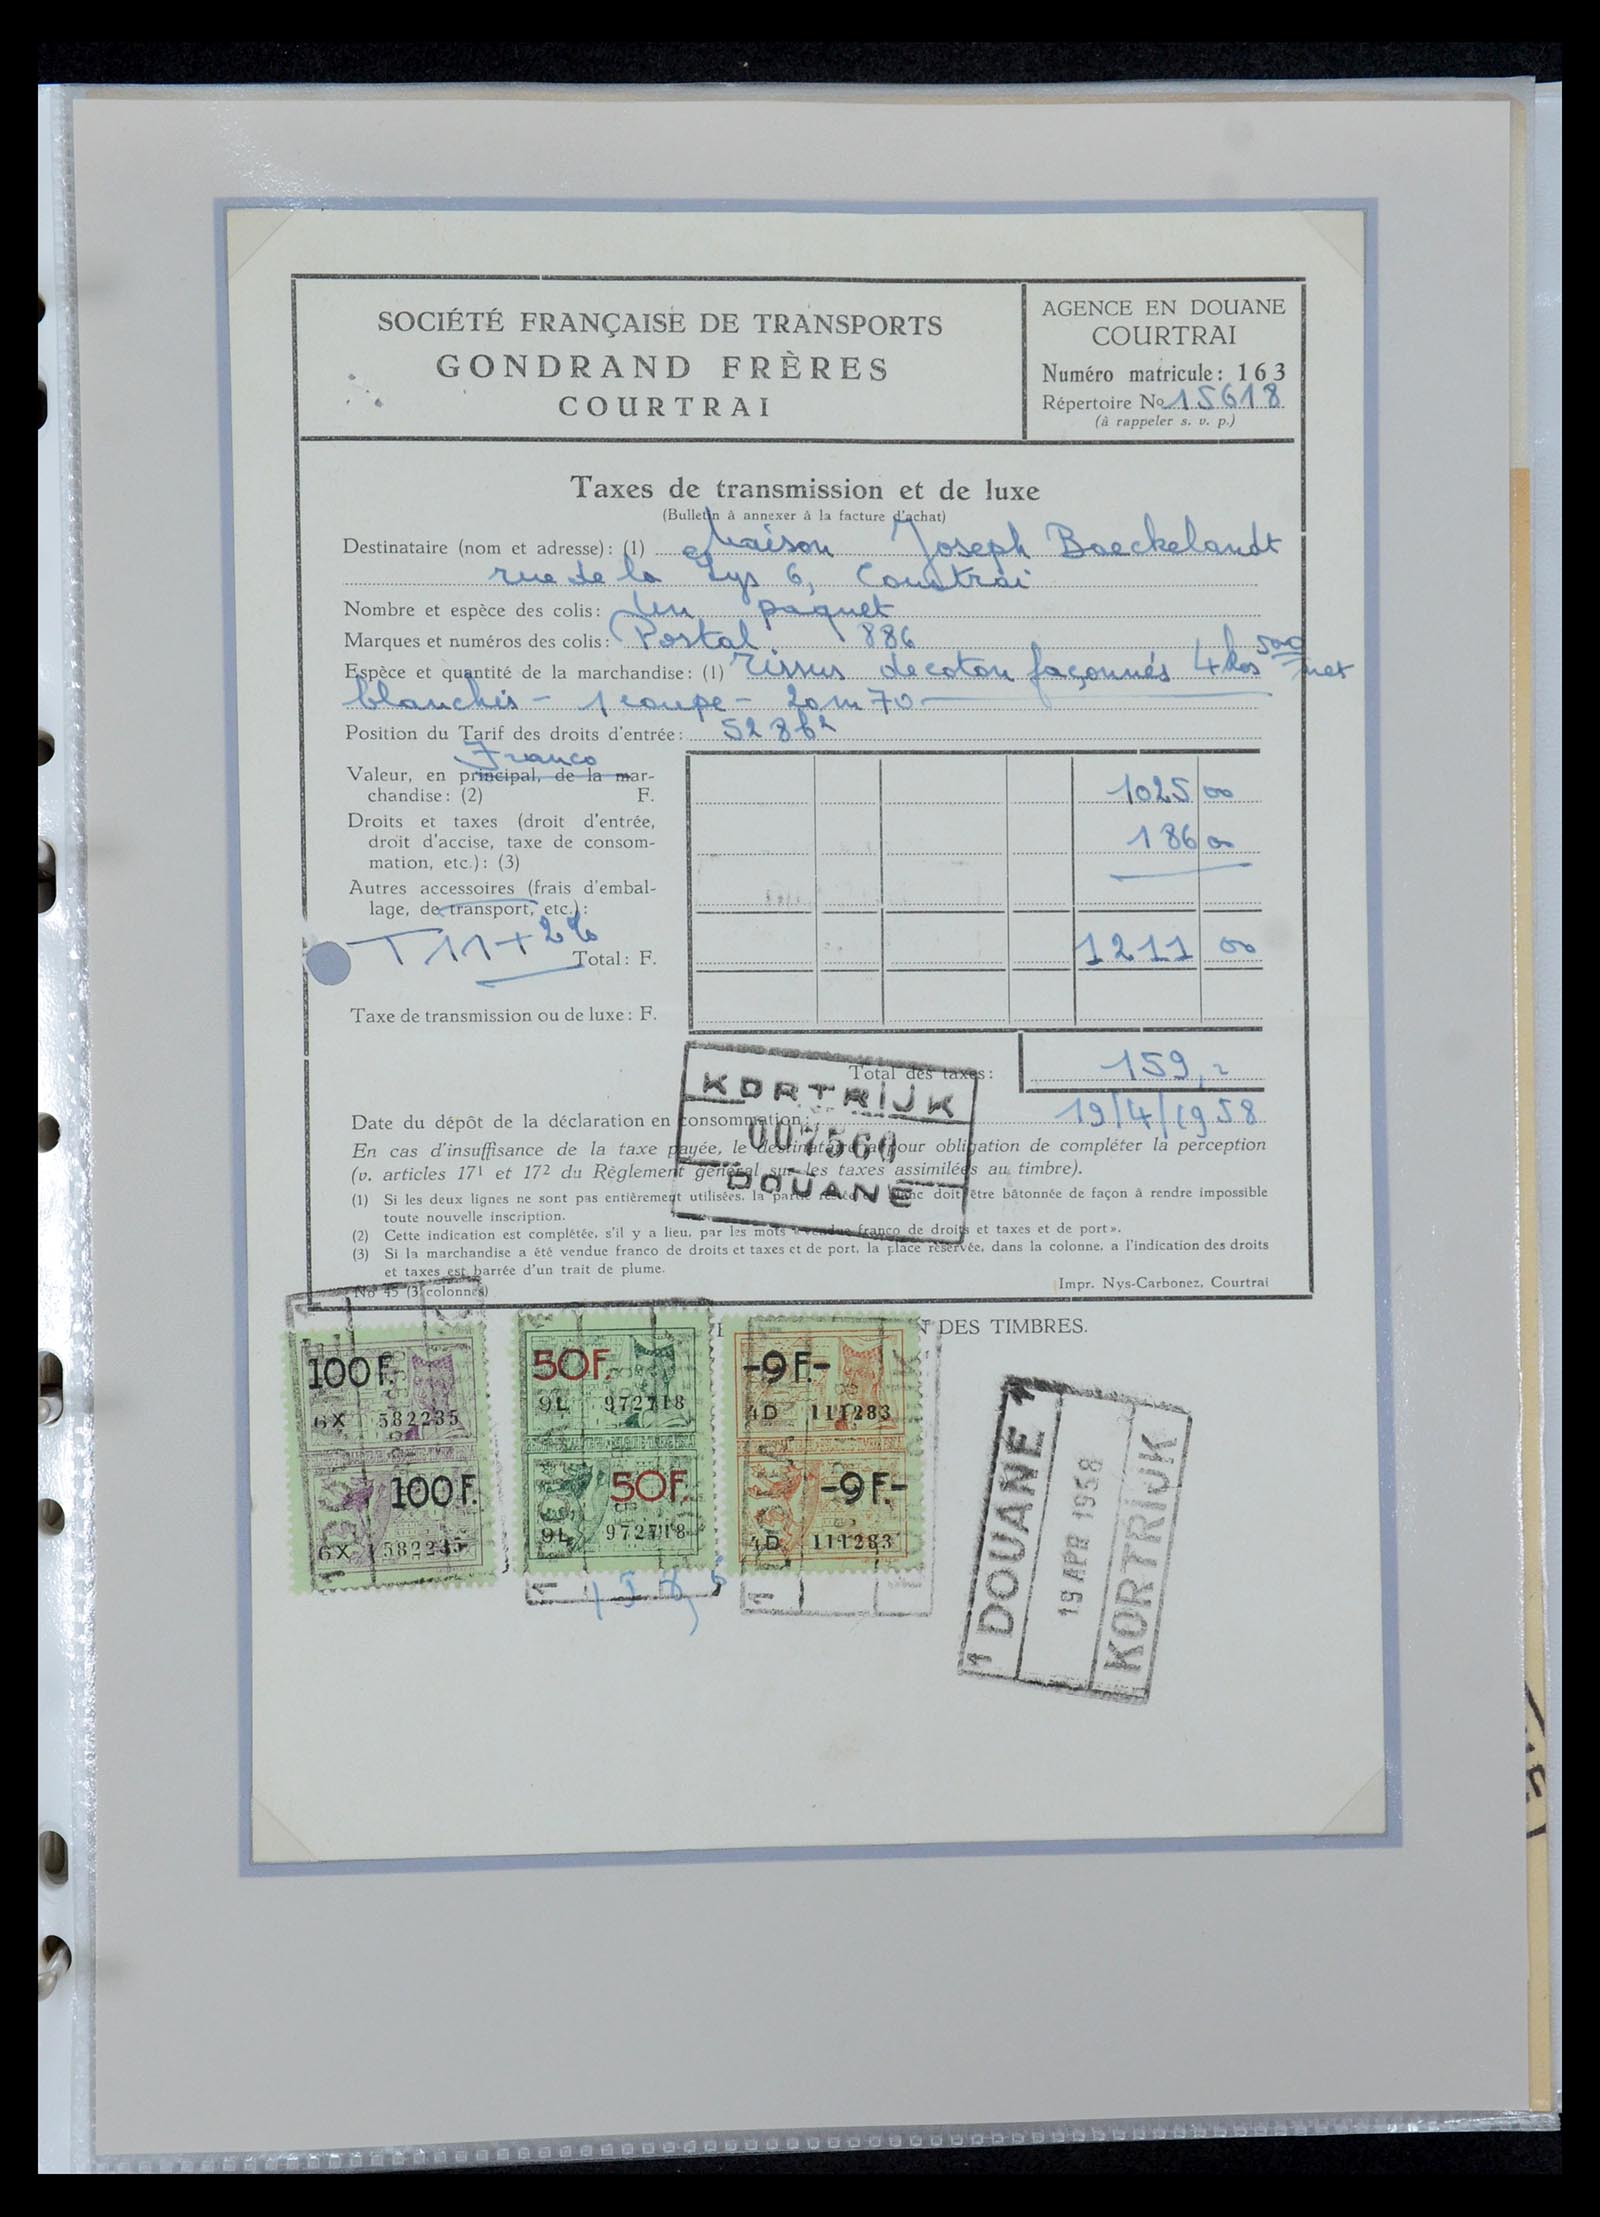 SOCIÉTÉ FRANÇAISE DE TRANSPORTS
GONDRAND FRÈRES
COURTRAI
AGENCE EN DOUANE
COURTRAI
Numéro matricule: 163
Répertoire No 15618
(à rappeler s. v. p.)
Taxes de transmission et de luxe
(Bulletin à annexer à la facture d'achat)
Destinataire (nom et adresse): (1) Maison Joseph Baeckelandt
rue de la Lys 6, Courtrai
Nombre et espèce des colis: Un paquet
Marques et numéros des colis: Postal 886
Espèce et quantité de la marchandise: (1) Tissus de coton façonnés 4 kos 500 net
blanchis - 1 coupe - 20m70
Position du Tarif des droits d'entrée: 528b2
Franco
Valeur, en principal, de la mar-
chandise: (2) F. 1025 00
Droits et taxes (droit d'entrée,
droit d'accise, taxe de consom-
mation, etc.): (3) 186 00
Autres accessoires (frais d'embal-
lage, de transport, etc.):
T 11 + 2%
Total: F. 1211 00
Taxe de transmission ou de luxe: F.
Total des taxes: 159,-
KORTRIJK
007560
DOUANE
Date du dépôt de la déclaration en consommation: 19/4/1958
En cas d'insuffisance de la taxe payée, le destinataire a pour obligation de compléter la perception
(v. articles 171 et 172 du Règlement général sur les taxes assimilées au timbre).
(1) Si les deux lignes ne sont pas entièrement utilisées, la partie restée en blanc doit être bâtonnée de façon à rendre impossible
toute nouvelle inscription.
(2) Cette indication est complétée, s'il y a lieu, par les mots «vendue franco de droits et taxes et de port».
(3) Si la marchandise a été vendue franco de droits et taxes et de port, la place réservée, dans la colonne, a l'indication des droits
et taxes est barrée d'un trait de plume.
No 45 (3 colonnes)
Impr. Nys-Carbonez, Courtrai
N DES TIMBRES.
100 F.
6X 582235
100 F.
6X 582235
50F.
9L 972718
50F.
9L 972718
-9F.-
4D 111283
-9F.-
4D 111283
1 DOUANE 1
19 APR 1958
KORTRIJK